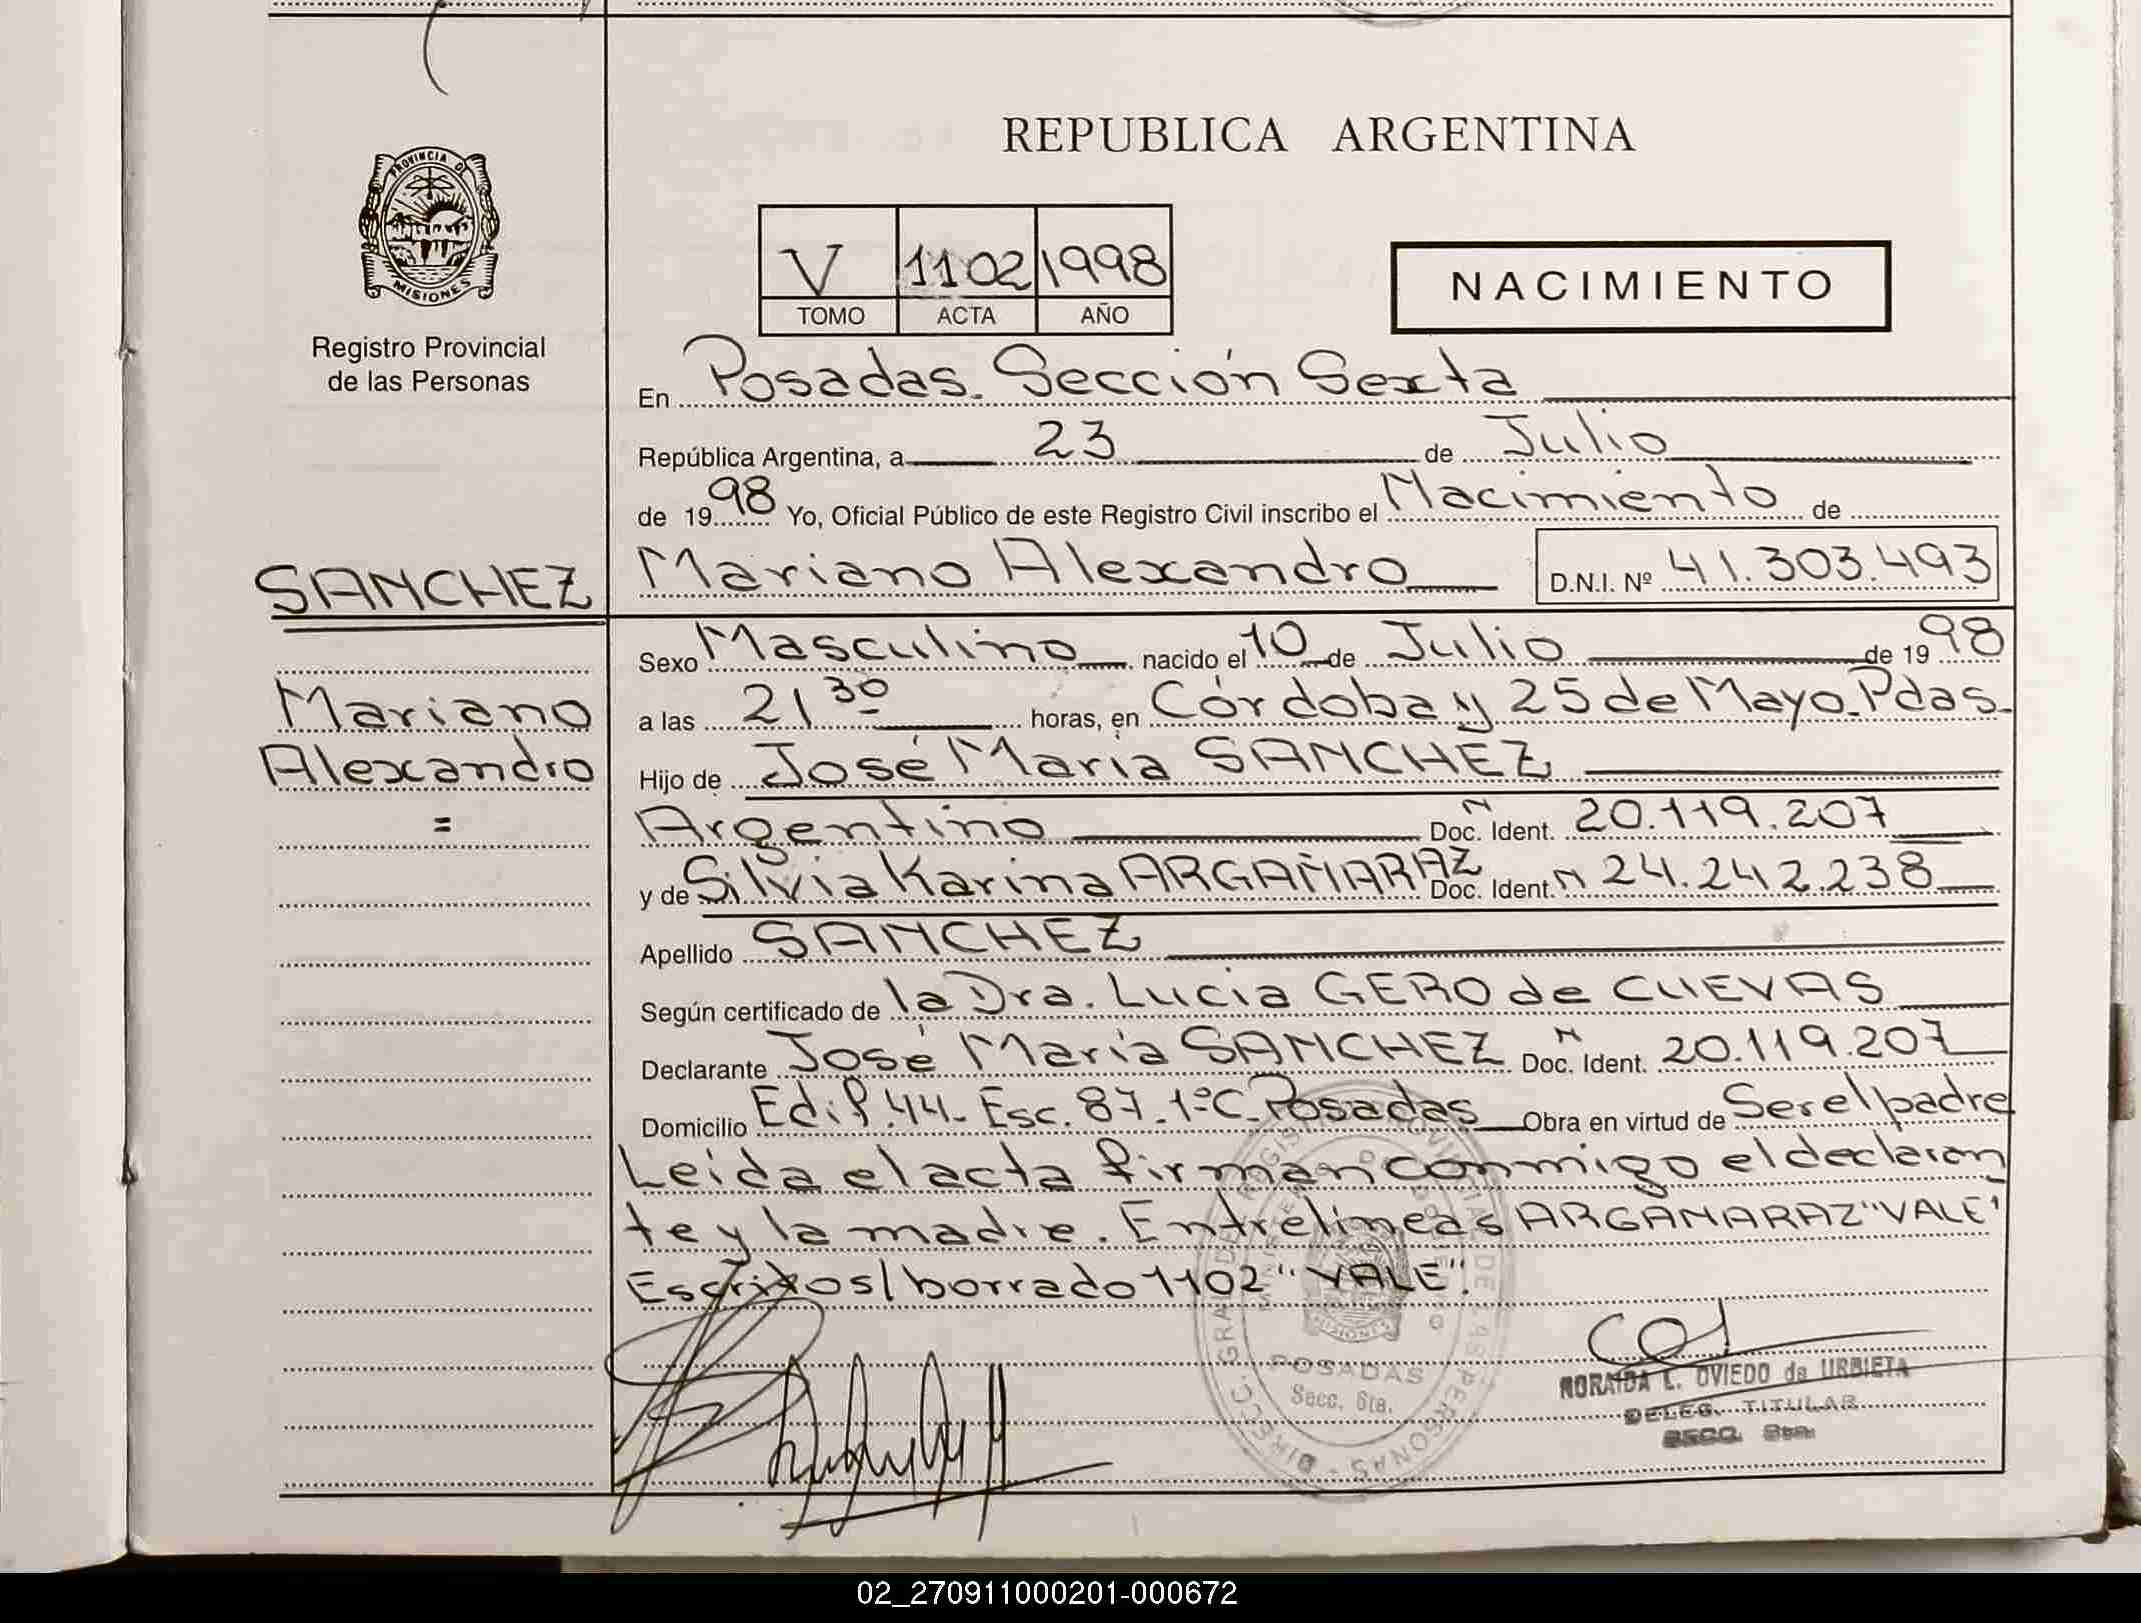 REPUBLICA ARGENTINA
PROVINCIA DE
MISIONES
Registro Provincial
de las Personas
V 1102 1998
TOMO ACTA AÑO
NACIMIENTO
En Posadas. Sección Sexta
República Argentina, a 23 de Julio
de 1998 Yo, Oficial Público de este Registro Civil inscribo el Nacimiento de
SANCHEZ
Mariano Alexandro D.N.I. Nº 41.303.493
Sexo Masculino nacido el 10 de Julio de 1998
Mariano
Alexandro
=
a las 21 30 horas, en Córdoba y 25 de Mayo. Pdas.
Hijo de José María SANCHEZ
Argentino Doc. Ident. N 20.119.207
y de Silvia Karina ARGAÑARAZ Doc. Ident. N 24.242.238
Apellido SANCHEZ
Según certificado de la Dra. Lucia GERO de CUEVAS
Declarante José María SANCHEZ Doc. Ident. N 20.119.207
Domicilio Edif. 44- Esc. 87. 1ºC. Posadas Obra en virtud de Ser el padre
Leida el acta firman conmigo el declaran
te y la madre. Entrelineas ARGAÑARAZ "VALE"
Escritos/borrado 1102 "VALE".
POSADAS
Secc. 6ta.
NORAIDA L. OVIEDO de URBIETA
DELEG. TITULAR
SECC. 6ta.
02_270911000201-000672